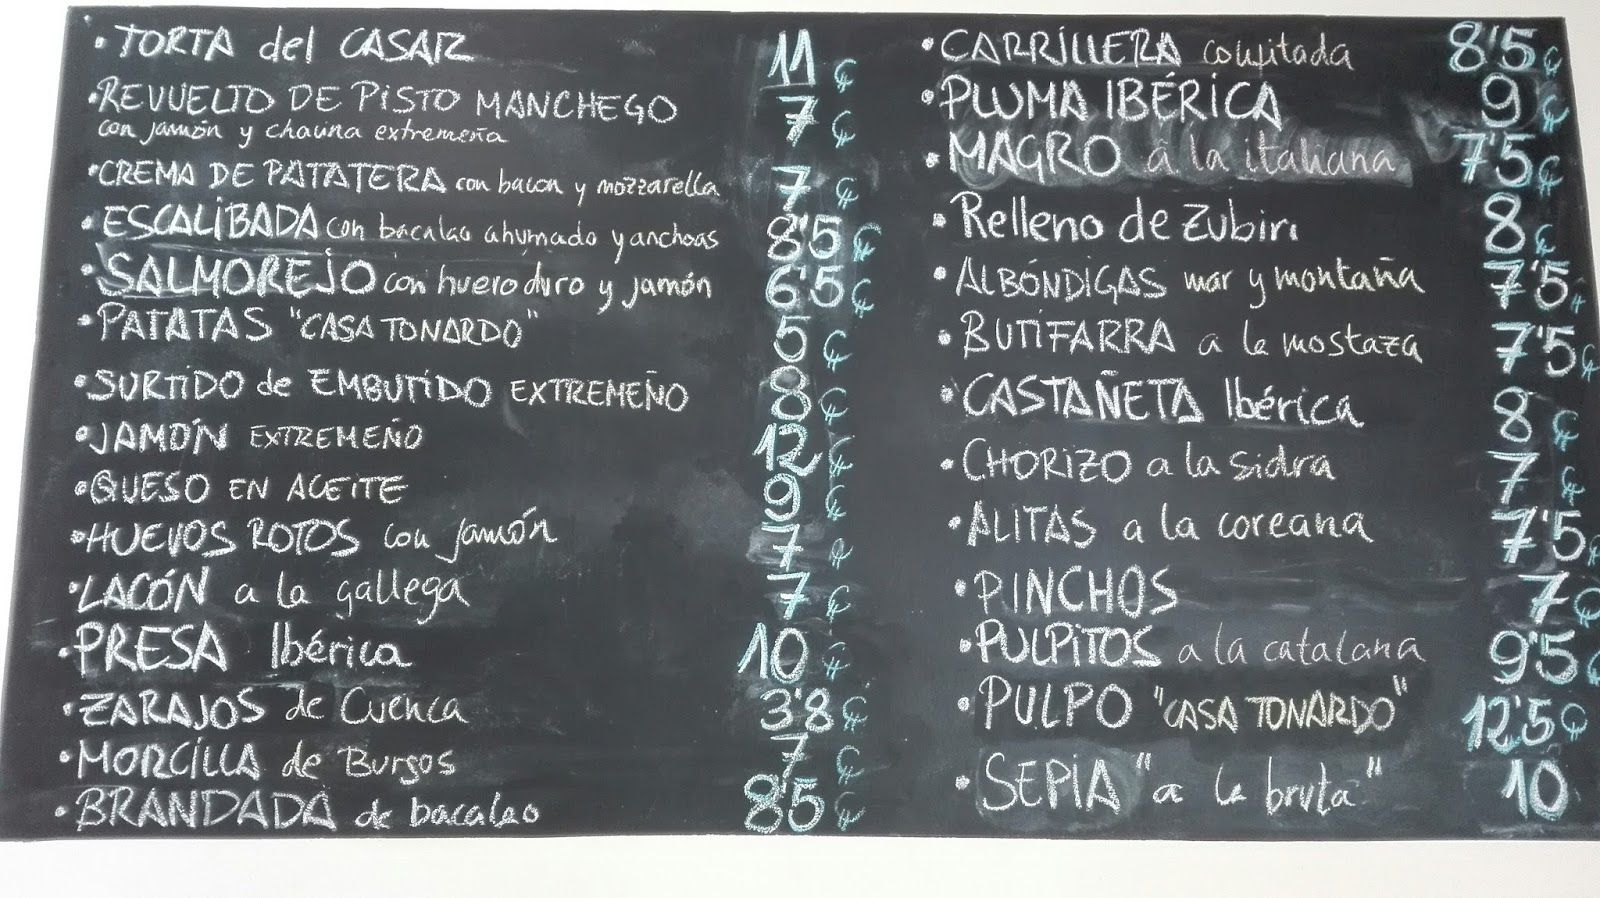 • TORTA del CASAR 11 €
• REVUELTO DE PISTO MANCHEGO 7 €
con jamón y chacina extremeña
• CREMA DE PATATERA con bacon y mozzarella 7 €
• ESCALIBADA con bacalao ahumado y anchoas 8'5 €
• SALMOREJO con huevo duro y jamón 6'5 €
• PATATAS "CASA TONARDO" 5 €
• SURTIDO de EMBUTIDO EXTREMEÑO 8 €
• JAMÓN EXTREMEÑO 12 €
• QUESO EN ACEITE 9 €
• HUEVOS ROTOS con jamón 7 €
• LACÓN a la gallega 7 €
• PRESA Ibérica 10 €
• ZARAJOS de Cuenca 3'8 €
• MORCILLA de Burgos 7 €
• BRANDADA de bacalao 8'5 €
• CARRILLERA confitada 8'5 €
• PLUMA IBÉRICA 9 €
• MAGRO a la italiana 7'5 €
• Relleno de Zubiri 8 €
• ALBÓNDIGAS mar y montaña 7'5 €
• BUTIFARRA a la mostaza 7'5 €
• CASTAÑETA Ibérica 8 €
• CHORIZO a la sidra 7 €
• ALITAS a la coreana 7'5 €
• PINCHOS 7 €
• PULPITOS a la catalana 9'5 €
• PULPO "CASA TONARDO" 12'5 €
• SEPIA "a la bruta" 10